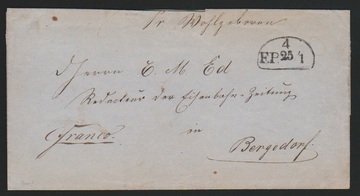 Sr Wohlgeboren
4
F.P 25 1
Herrn E. M. Ed
Redacteur der Eisenbahn-Zeitung
Franco.
in
Bergedorf.